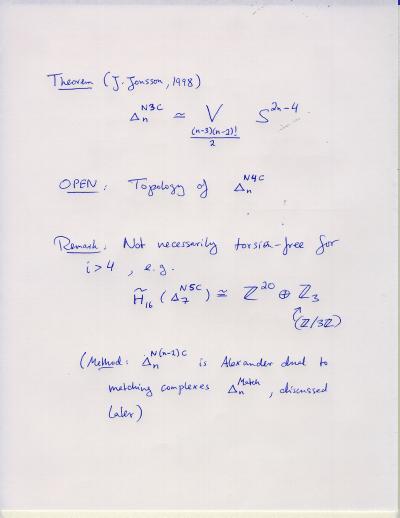 Theorem (J. Jonsson, 1998)
Δ_n^{N3C} ≃ ⋁_{(n-3)(n-2)!/2} S^{2n-4}
OPEN: Topology of Δ_n^{N4C}
Remark: Not necessarily torsion-free for
i>4, e.g.
H̃_{16}(Δ_7^{N5C}) ≅ ℤ^{20} ⊕ ℤ_3
(ℤ/3ℤ)
(Method: Δ_n^{N(n-2)C} is Alexander dual to
matching complexes Δ_n^{Match}, discussed
later)